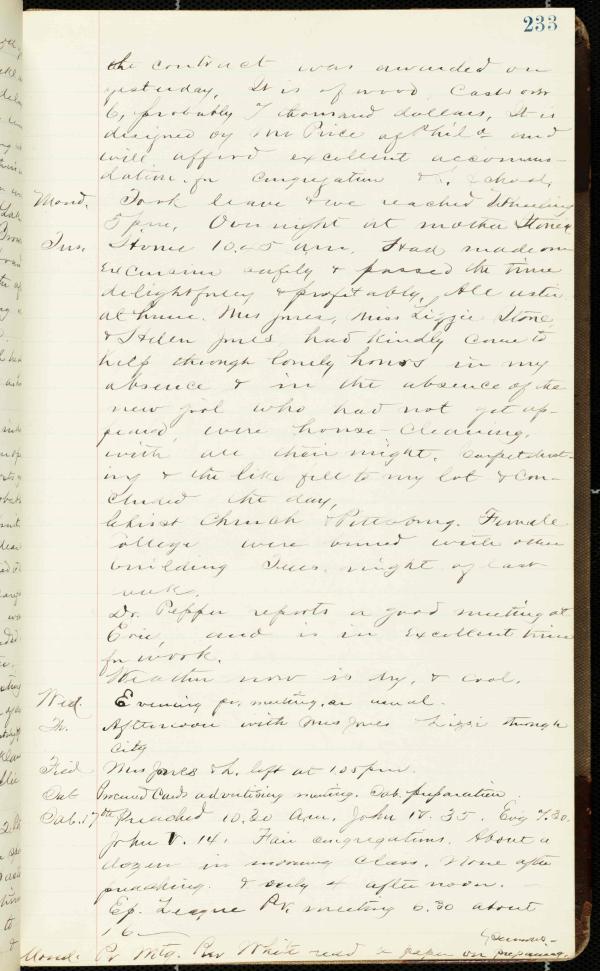 233
the contract was awarded on
yesterday. It is of wood. Cost over
6, probably 7 thousand dollars, It is
designed by Mr Price of Phila and
will afford excellent accommo-
dation for congregation & S. School.
Mond. Took leave & we reached Wheeling
5 p.m. Over night at mother Stone's
Tus. Home 10.45 a.m. Had made our
excursion safely & passed the time
delightfully & profitably. All well
at home. Mrs Jones, Miss Lizzie Stone,
& Helen Jones had kindly come to
help through lonely hours in my
absence & in the absence of the
new girl who had not yet ap-
peared, were house-cleaning,
with all their might. Carpet beat-
ing & the like fell to my lot & con-
cluded the day.
Christ Church & Pittsburg. Female
College were burned with other
building Tues. night of last
week.
Dr. Pepper reports a good meeting at
Erie, and is in excellent trim
for work.
Weather now is dry, & cool.
Wed. Evening pr. meeting, as usual.
Th. Afternoon with Mrs Jones Lizzie through
city
Frid Mrs Jones & h. left at 1.05 pm.
Sat Procured Cards advertising meeting. Sab. preparation.
Sab. 17th Preached 10.30 a.m. John IV. 35. Evg 7.30.
John V. 14. Fair congregations. About a
dozen in morning class. None after
preaching. & only 4 afternoon.
Ep. League Pr. meeting 6.30 about
16—
Mond. Pr Mtg. Rev White read a paper on preparing
Sermons—